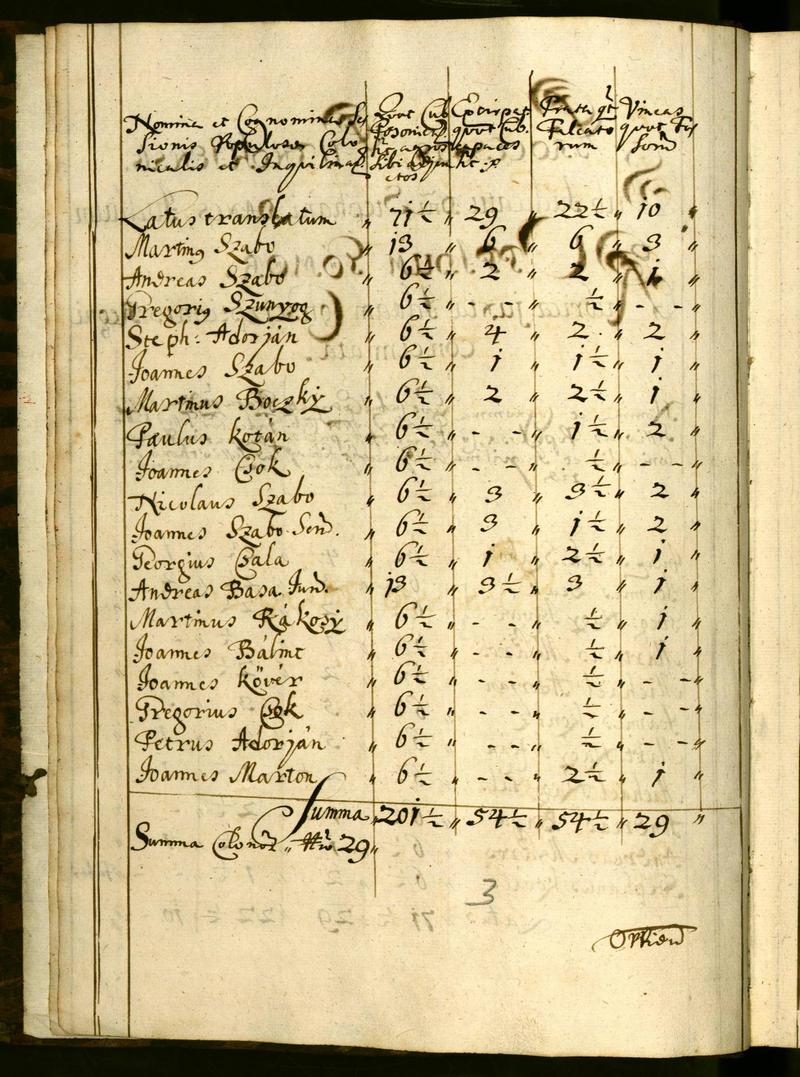 Nomina et Cognomina Ses
sionis Populosae Colo
nicalis et Inquilinal
Quot Cub
Posonien
sibi adjun
ctos
Extirpat
quot Cub.
capaces
Prata qt
Falcato
rum
Vineas
quot Fos
sorū
Latus translatum „ 71 ½ „ 29 „ 22 ½ „ 10 „
Martinꝰ Szabo „ 13 „ 6 „ 6 „ 3 „
Andreas Szabo „ 6 ½ „ 2 „ 2 „ 1 „
Gregoriꝰ Szunyog „ 6 ½ „ - - „ ½ „ - - „
Steph: Adorján „ 6 ½ „ 4 „ 2 „ 2 „
Joannes Szabo „ 6 ½ „ 1 „ 1 ½ „ 1 „
Martinus Boczky „ 6 ½ „ 2 „ 2 ½ „ 1 „
Paulus Kotán „ 6 ½ „ - - „ 1 ½ „ 2 „
Joannes Csok „ 6 ½ „ - - „ ½ „ - - „
Nicolaus Szabo „ 6 ½ „ 3 „ 3 ½ „ 2 „
Joannes Szabo Sen. „ 6 ½ „ 3 „ 1 ½ „ 2 „
Georgius Csala „ 6 ½ „ 1 „ 2 ½ „ 1 „
Andreas Basa Jun. „ 13 „ 3 ½ „ 3 „ 1 „
Martinus Rákosÿ „ 6 ½ „ - - „ ½ „ 1 „
Joannes Bálint „ 6 ½ „ - - „ ½ „ 1 „
Joannes Kövér „ 6 ½ „ - - „ ½ „ - - „
Gregorius Csok „ 6 ½ „ - - „ ½ „ - - „
Petrus Adorján „ 6 ½ „ - - „ ½ „ - - „
Joannes Marton „ 6 ½ „ - - „ 2 ½ „ 1 „
Summa „ 201 ½ „ 54 ½ „ 54 ½ „ 29 „
Summa Colonor „ Nro 29 „
3